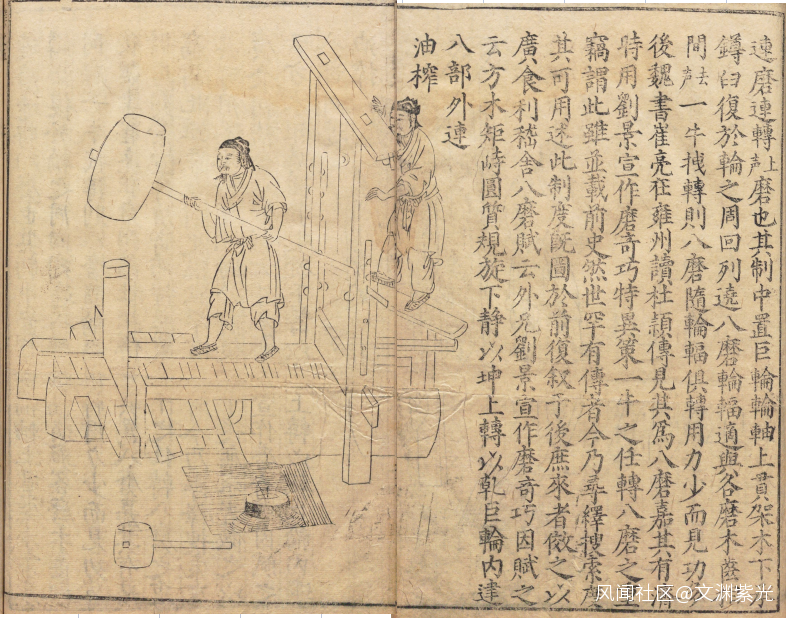 連磨連轉上声磨也其制中置巨輪輪軸上貫架木下承
鐏臼復於輪之周回列遶八磨輪輻適與各磨木齒相
間去声一牛拽轉則八磨隨輪輻俱轉用力少而見功多
後魏書崔亮在雍州讀杜預傳見其為八磨嘉其有濟
時用劉景宣作磨奇巧特異策一牛之任轉八磨之重
竊謂此雖並載前史然世罕有傳者今乃尋繹搜索度
其可用述此制度既圖於前復叙于後庶來者倣之以
廣食利嵇舍八磨賦云外兄劉景宣作磨奇巧因賦之
云方木矩峙圓質規旋下静以坤上轉以乾巨輪内達
八部外連
油榨
风闻社区@文渊紫光